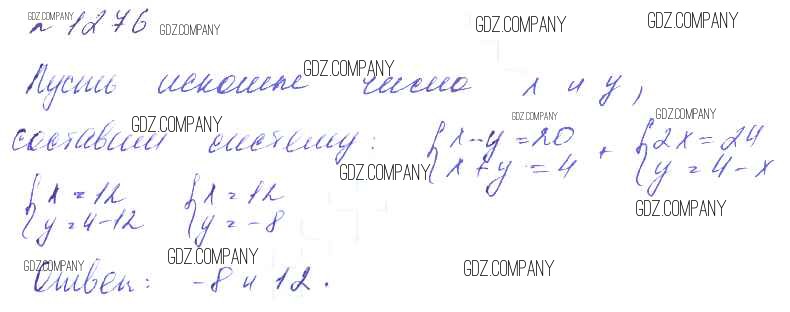 № 1276
Пусть искомые числа x и y,
составим систему: { x - y = 20 + { 2x = 24
{ x + y = 4 { y = 4 - x
{ x = 12 { x = 12
{ y = 4 - 12 { y = -8
Ответ: -8 и 12.
GDZ.COMPANY
GDZ.COMPANY
GDZ.COMPANY
GDZ.COMPANY
GDZ.COMPANY
GDZ.COMPANY
GDZ.COMPANY
GDZ.COMPANY
GDZ.COMPANY
GDZ.COMPANY
GDZ.COMPANY
GDZ.COMPANY
GDZ.COMPANY